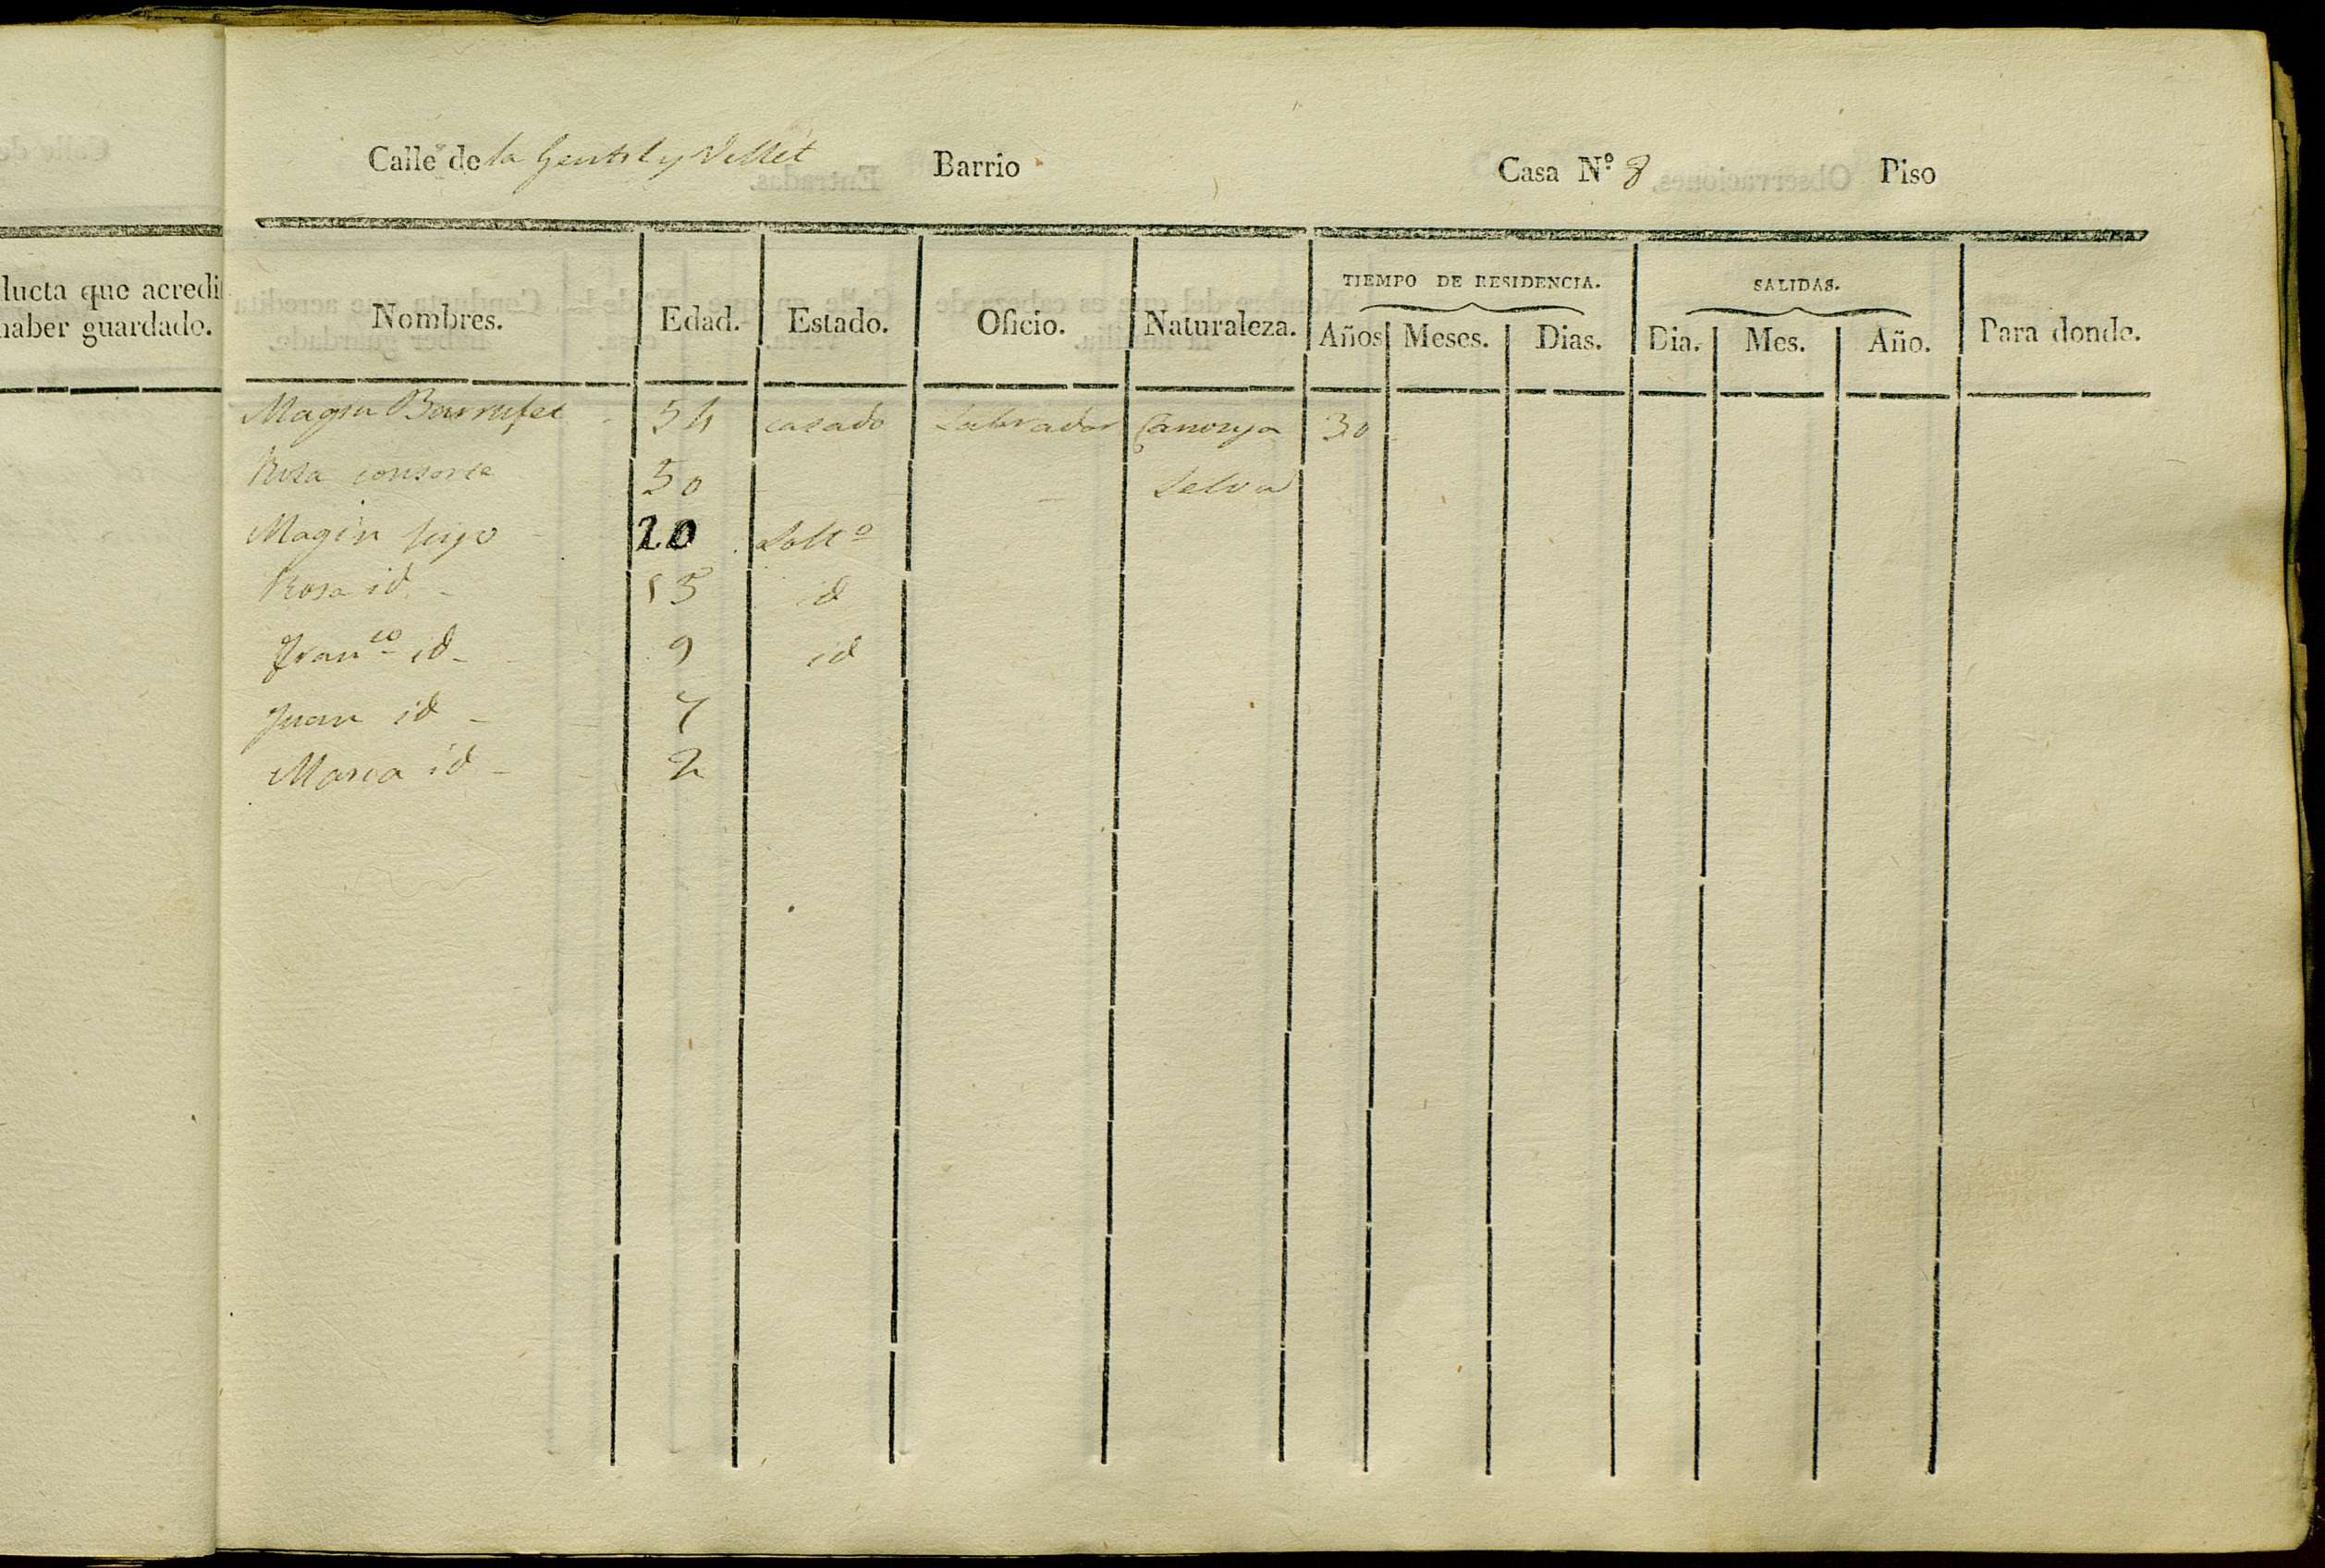 Calle de la Gentil y Vellet Barrio Casa N.º 8 Piso
lucta que acredi
haber guardado.
TIEMPO DE RESIDENCIA. SALIDAS.
Nombres. Edad. Estado. Oficio. Naturaleza. Años Meses. Dias. Dia. Mes. Año. Para donde.
Magin Barrufet 54 casado Labrador Canonja 30
Rosa consorte 50 Selva
Magin hijo 20 Solt.º
Rosa id 15 id
Fran.co id 9 id
Juan id 7
Maria id 2